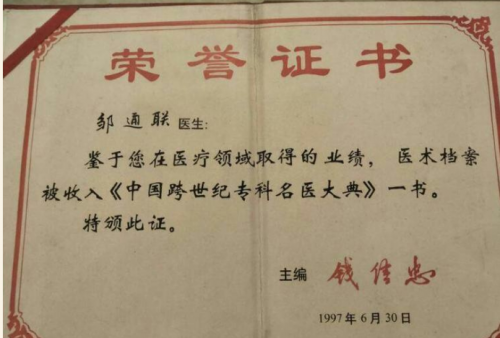 荣誉证书
邹通联医生:
鉴于您在医疗领域取得的业绩，医术档案
被收入《中国跨世纪专科名医大典》一书。
特颁此证。
主编 钱信忠
1997年6月30日